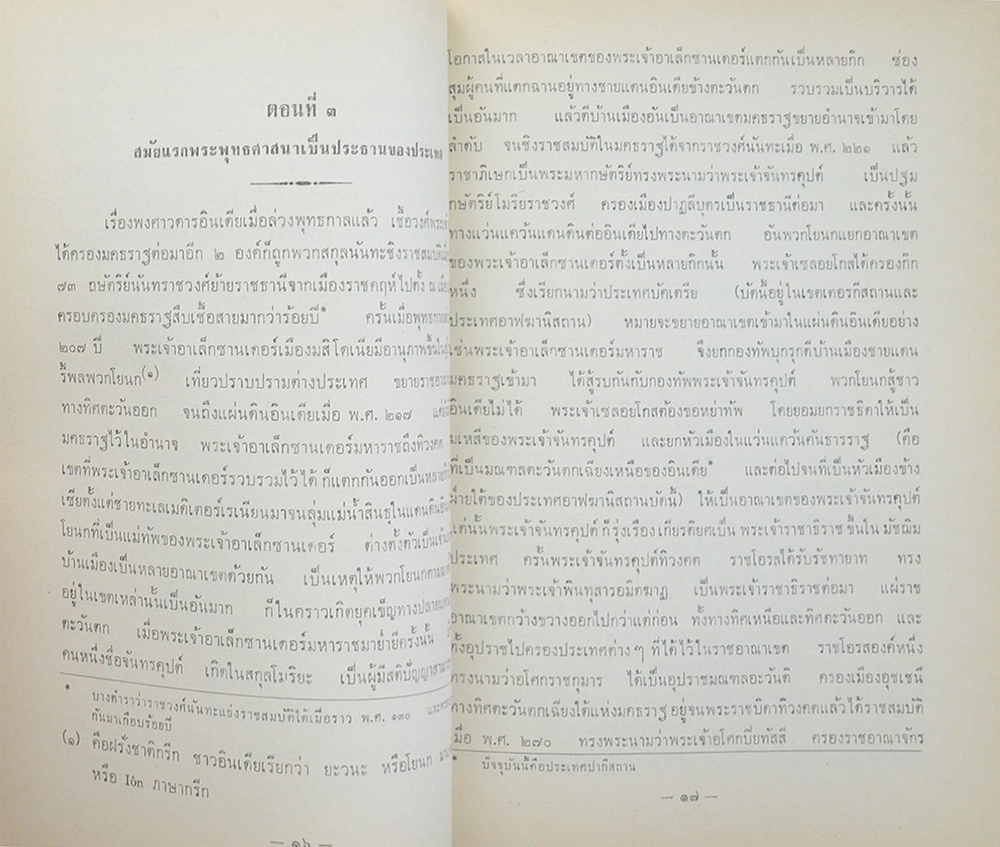 ตอนที่ ๓
สมัยแรกพระพุทธศาสนาเป็นประธานของประเทศ
เรื่องพงศาวดารอินเดียเมื่อล่วงพุทธกาลแล้ว เชื้อวงศ์
ได้ครองมคธราฐต่อมาอีก ๒ องค์ก็ถูกพวกสกุลนันทะชิงราชสมบัติ
๗๓ กษัตริย์นันทราชวงศ์ย้ายราชธานีจากเมืองราชคฤห์ไปตั้ง ณ
ครอบครองมคธราฐสืบเชื้อสายมากว่าร้อยปี* ครั้นเมื่อพุทธกาล
๒๐๗ ปี พระเจ้าอาเล็กซานเดอร์เมืองมสิโดเนียมีอานุภาพขึ้น
รี้พลพวกโยนก(๑) เที่ยวปราบปรามต่างประเทศ ขยายราชอาณา
ทางทิศตะวันออก จนถึงแผ่นดินอินเดียเมื่อ พ.ศ. ๒๑๗
มคธราฐไว้ในอำนาจ พระเจ้าอาเล็กซานเดอร์มหาราชถึงทิวงคต
เขตที่พระเจ้าอาเล็กซานเดอร์รวบรวมไว้ได้ ก็แตกกันออกเป็นหลาย
เซียตั้งแต่ชายทะเลเมดิเตอร์เรเนียนมาจนลุ่มแม่น้ำสินธุในแดนดิน
โยนกที่เป็นแม่ทัพของพระเจ้าอาเล็กซานเดอร์ ต่างตั้งตัวเป็น
บ้านเมืองเป็นหลายอาณาเขตด้วยกัน เป็นเหตุให้พวกโยนก
อยู่ในเขตเหล่านั้นเป็นอันมาก ก็ในคราวเกิดยุคเข็ญทางปลาย
ตะวันตก เมื่อพระเจ้าอาเล็กซานเดอร์มหาราชมาย่ำยีครั้งนั้น
คนหนึ่งชื่อจันทรคุปต์ เกิดในสกุลโมริยะ เป็นผู้มีสติปัญญา
* บางตำราว่าราชวงศ์นันทะแย่งราชสมบัติได้เมื่อราว พ.ศ. ๑๓๐
กันมาเกือบร้อยปี
(๑) คือฝรั่งชาติกรีก ชาวอินเดียเรียกว่า ยะวนะ หรือโยนก
หรือ Iôn ภาษากรีก
— ๑๖ —
โอกาสในเวลาอาณาเขตของพระเจ้าอาเล็กซานเดอร์แตกกันเป็นหลายก๊ก ซ่อง
สุมผู้คนที่แตกฉานอยู่ทางชายแดนอินเดียข้างตะวันตก รวบรวมเป็นบริวารได้
เป็นอันมาก แล้วตีบ้านเมืองอันเป็นอาณาเขตมคธราฐขยายอำนาจเข้ามาโดย
ลำดับ จนชิงราชสมบัติในมคธราฐได้จากราชวงศ์นันทะเมื่อ พ.ศ. ๒๒๑ แล้ว
ราชาภิเษกเป็นพระมหากษัตริย์ทรงพระนามว่าพระเจ้าจันทรคุปต์ เป็นปฐม
กษัตริย์โมริยราชวงศ์ ครองเมืองปาฏลีบุตรเป็นราชธานีต่อมา และครั้งนั้น
ทางแว่นแคว้นแดนดินต่ออินเดียไปทางตะวันตก อันพวกโยนกแยกอาณาเขต
ของพระเจ้าอาเล็กซานเดอร์ตั้งเป็นหลายก๊กนั้น พระเจ้าเซลอยโกสได้ครองก๊ก
หนึ่ง ซึ่งเรียกนามว่าประเทศบัคเตรีย (บัดนี้อยู่ในเขตเตอรกีสถานและ
ประเทศอาฟฆานิสถาน) หมายจะขยายอาณาเขตเข้ามาในแผ่นดินอินเดียอย่าง
เช่นพระเจ้าอาเล็กซานเดอร์มหาราช จึงยกกองทัพบุกรุกตีบ้านเมืองชายแดน
มคธราฐเข้ามา ได้สู้รบกันกับกองทัพพระเจ้าจันทรคุปต์ พวกโยนกสู้ชาว
อินเดียไม่ได้ พระเจ้าเซลอยโกสต้องขอหย่าทัพ โดยยอมยกราชธิดาให้เป็น
มเหสีของพระเจ้าจันทรคุปต์ และยกหัวเมืองในแว่นแคว้นคันธารราฐ (คือ
ที่เป็นมณฑลตะวันตกเฉียงเหนือของอินเดีย* และต่อไปจนที่เป็นหัวเมืองข้าง
ฝ่ายใต้ของประเทศอาฟฆานิสถานบัดนี้) ให้เป็นอาณาเขตของพระเจ้าจันทรคุปต์
แต่นั้นพระเจ้าจันทรคุปต์ ก็รุ่งเรืองเกียรติยศเป็น พระเจ้าราชาธิราช ขึ้นใน มัชฌิม
ประเทศ ครั้นพระเจ้าจันทรคุปต์ทิวงคต ราชโอรสได้รับรัชทายาท ทรง
พระนามว่าพระเจ้าพินทุสารอมิตฆาฏ เป็นพระเจ้าราชาธิราชต่อมา แผ่ราช
อาณาเขตกว้างขวางออกไปกว่าแต่ก่อน ทั้งทางทิศเหนือและทิศตะวันออก และ
ตั้งอุปราชไปครองประเทศต่าง ๆ ที่ได้ไว้ในราชอาณาเขต ราชโอรสองค์หนึ่ง
ทรงนามว่าอโศกราชกุมาร ได้เป็นอุปราชมณฑลอะวันติ ครองเมืองอุชเชนี
ทางทิศตะวันตกเฉียงใต้แห่งมคธราฐ อยู่จนพระราชบิดาทิวงคตแล้วได้ราชสมบัติ
เมื่อ พ.ศ. ๒๗๐ ทรงพระนามว่าพระเจ้าอโศกปิยทัสสี ครองราชอาณาจักร
* ปัจจุบันนี้คือประเทศปากีสถาน
— ๑๗ —